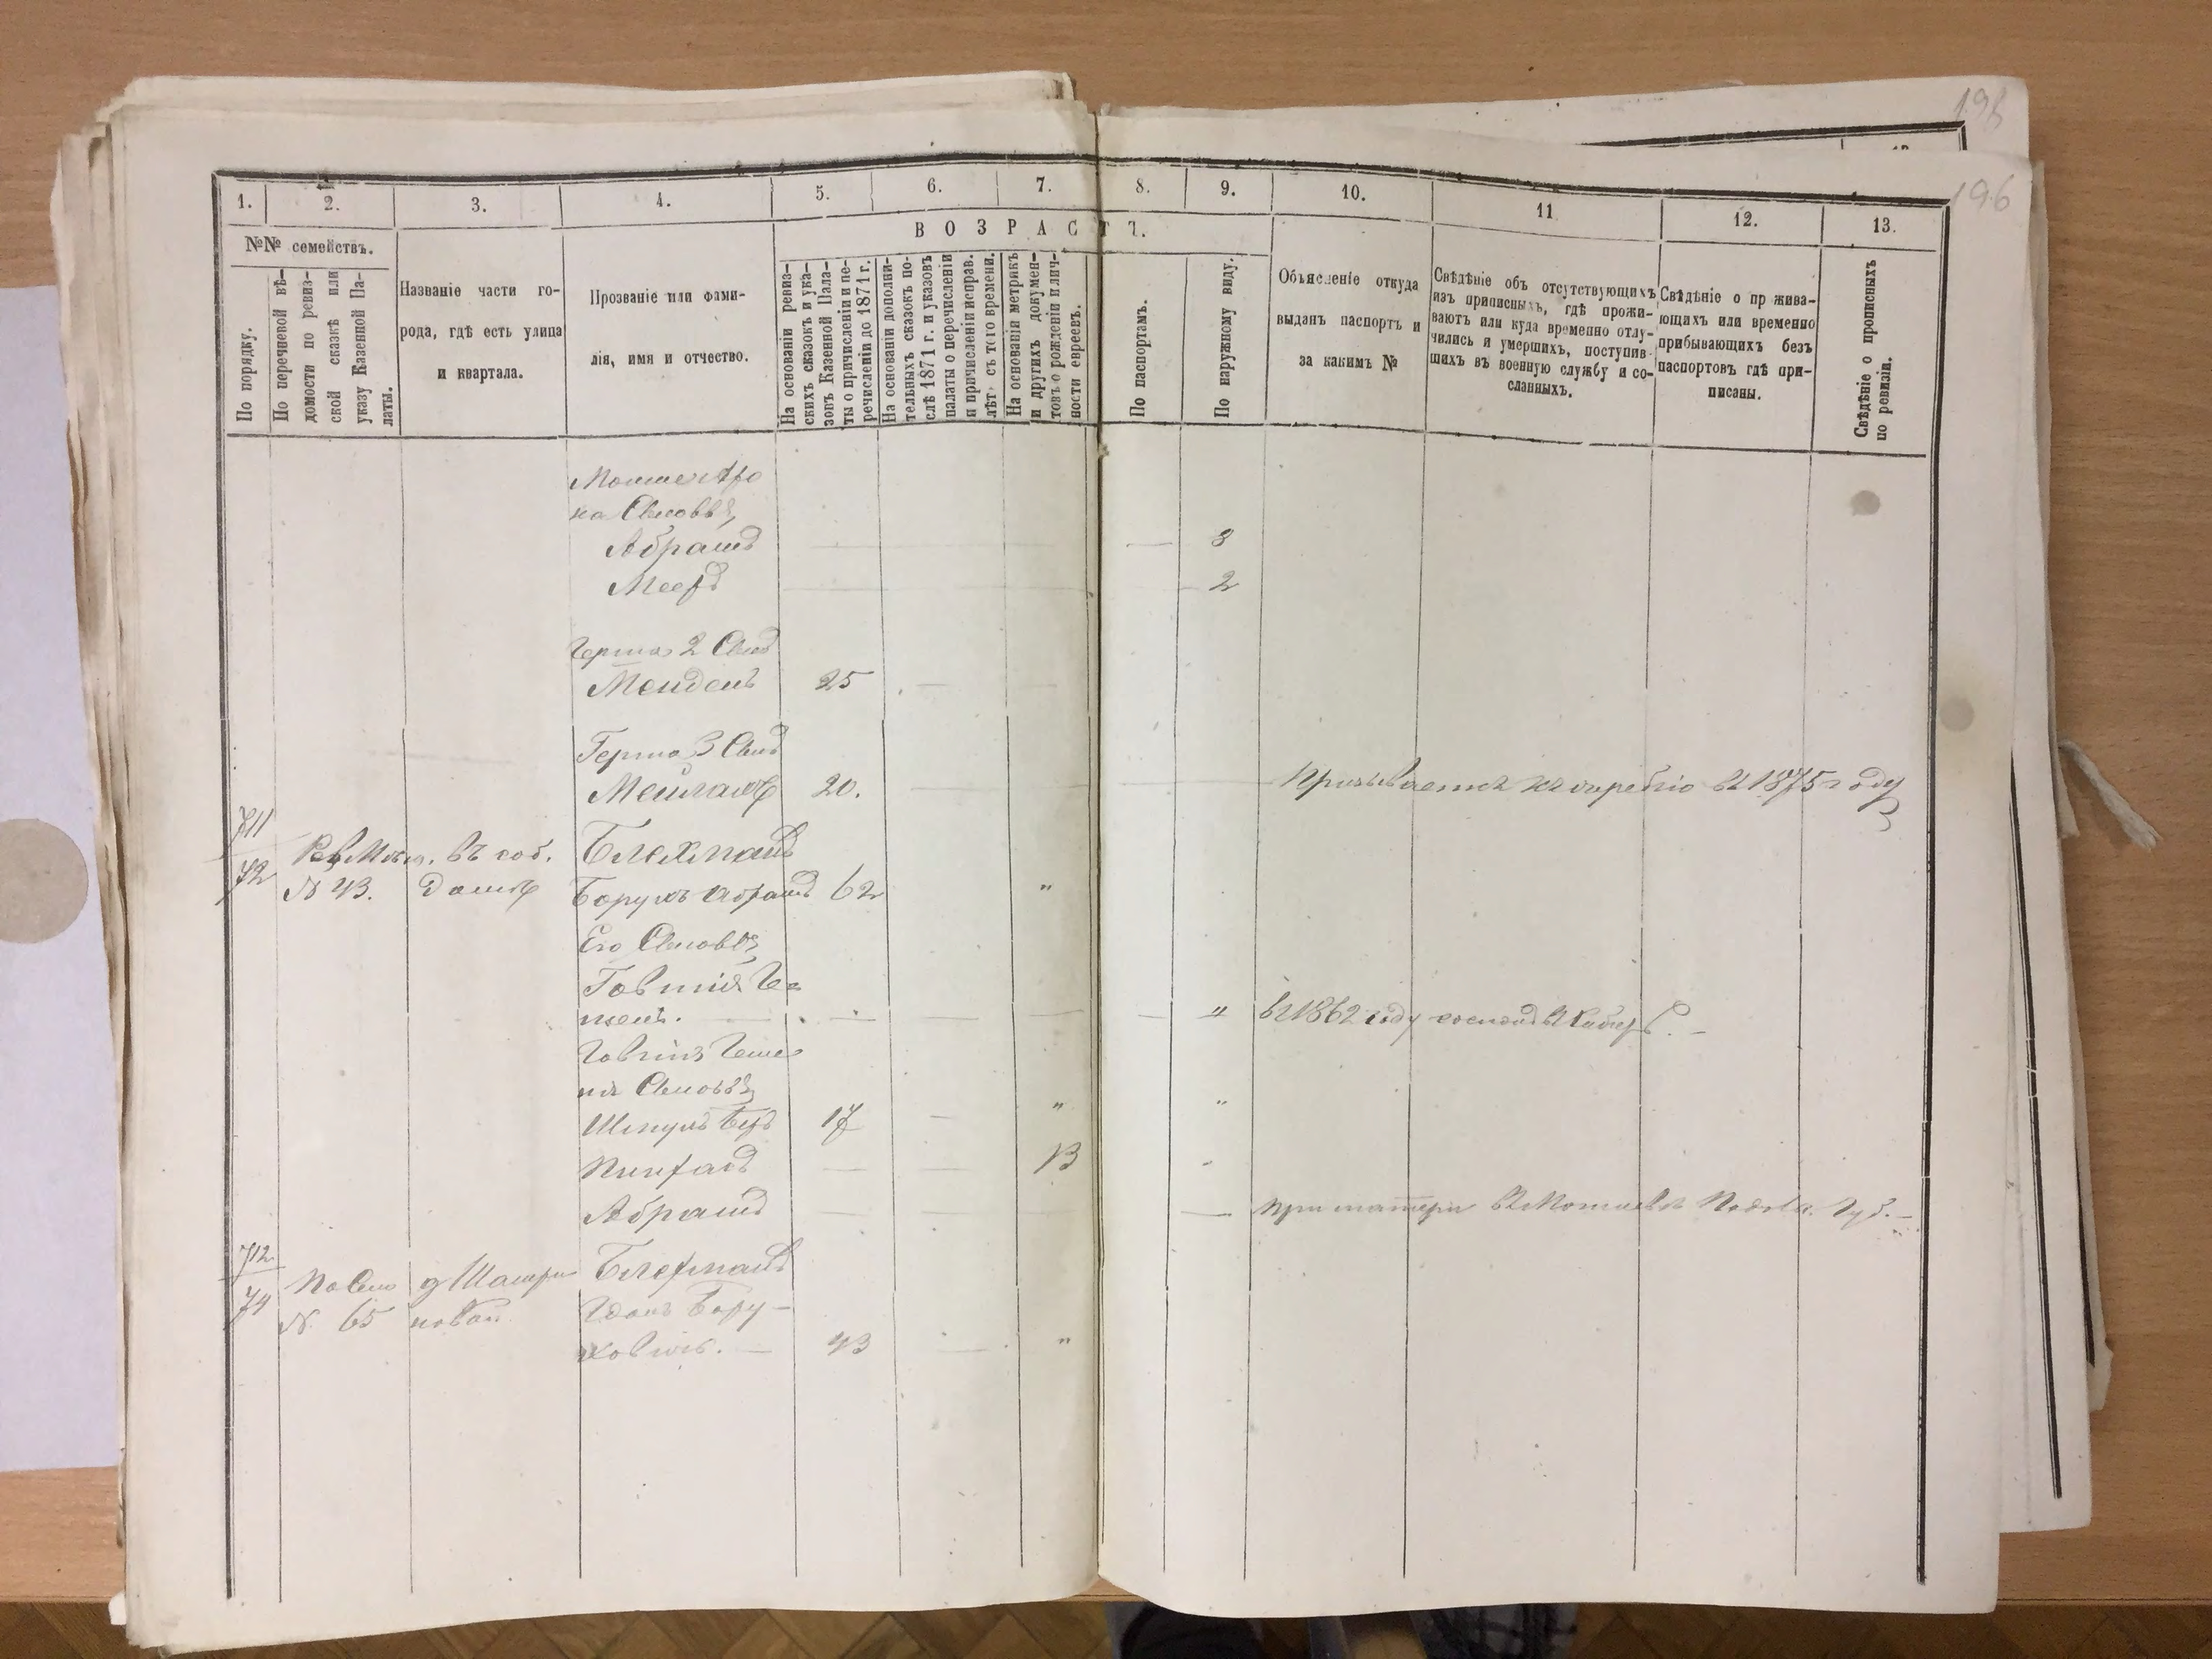 198
196
1. 2. 3. 4. 5. 6. 7. 8. 9. 10. 11 12. 13.
ВОЗРАСТЪ.
№№ семействъ.
По порядку.
По перечневой вѣ-
домости по ревиз-
ской сказкѣ или
указу Казенной Па-
латы.
Названіе части го-
рода, гдѣ есть улица
и квартала.
Прозваніе или фами-
лія, имя и отчество.
На основаніи ревиз-
скихъ сказокъ и ука-
зовъ Казенной Пала-
ты о причисленіи и пе-
речисленіи до 1871 г.
На основаніи дополни-
тельныхъ сказокъ по-
слѣ 1871 г. и указовъ
палаты о перечисленіи
и причисленіи исправ.
лѣтъ съ того времени.
На основаніи метрикъ
и другихъ докумен-
товъ о рожденіи и лич-
ности евреевъ.
По паспортамъ.
По наружному виду.
Объясненіе откуда
выданъ паспортъ и
за какимъ №
Свѣдѣніе объ отсутствующихъ
изъ приписныхъ, гдѣ прожи-
ваютъ или куда временно отлу-
чились и умершихъ, поступив-
шихъ въ военную службу и со-
сланныхъ.
Свѣдѣніе о пр жива-
ющихъ или временно
прибывающихъ безъ
паспортовъ гдѣ при-
писаны.
Свѣдѣніе о прописныхъ
по ревизіи.
Мошке
Сыновья,
Абрамъ 3
Мееръ 2
Герша 2 Сынъ
Мендель 25
Герша 3 Сынъ
20. Призывается къ жребію въ 1875 году
711
72
въ соб. Блехманъ
N 43. домѣ Борухъ Абрамъ 62 "
Его Сыновья,
" въ 1862 году
Сыновья
Беръ 17 " "
Пинхасъ 13
Абрамъ при матери въ Могилевѣ Подол. Губ.
712
74
Блехманъ
N. 65 Бору-
ховичъ. 43 "